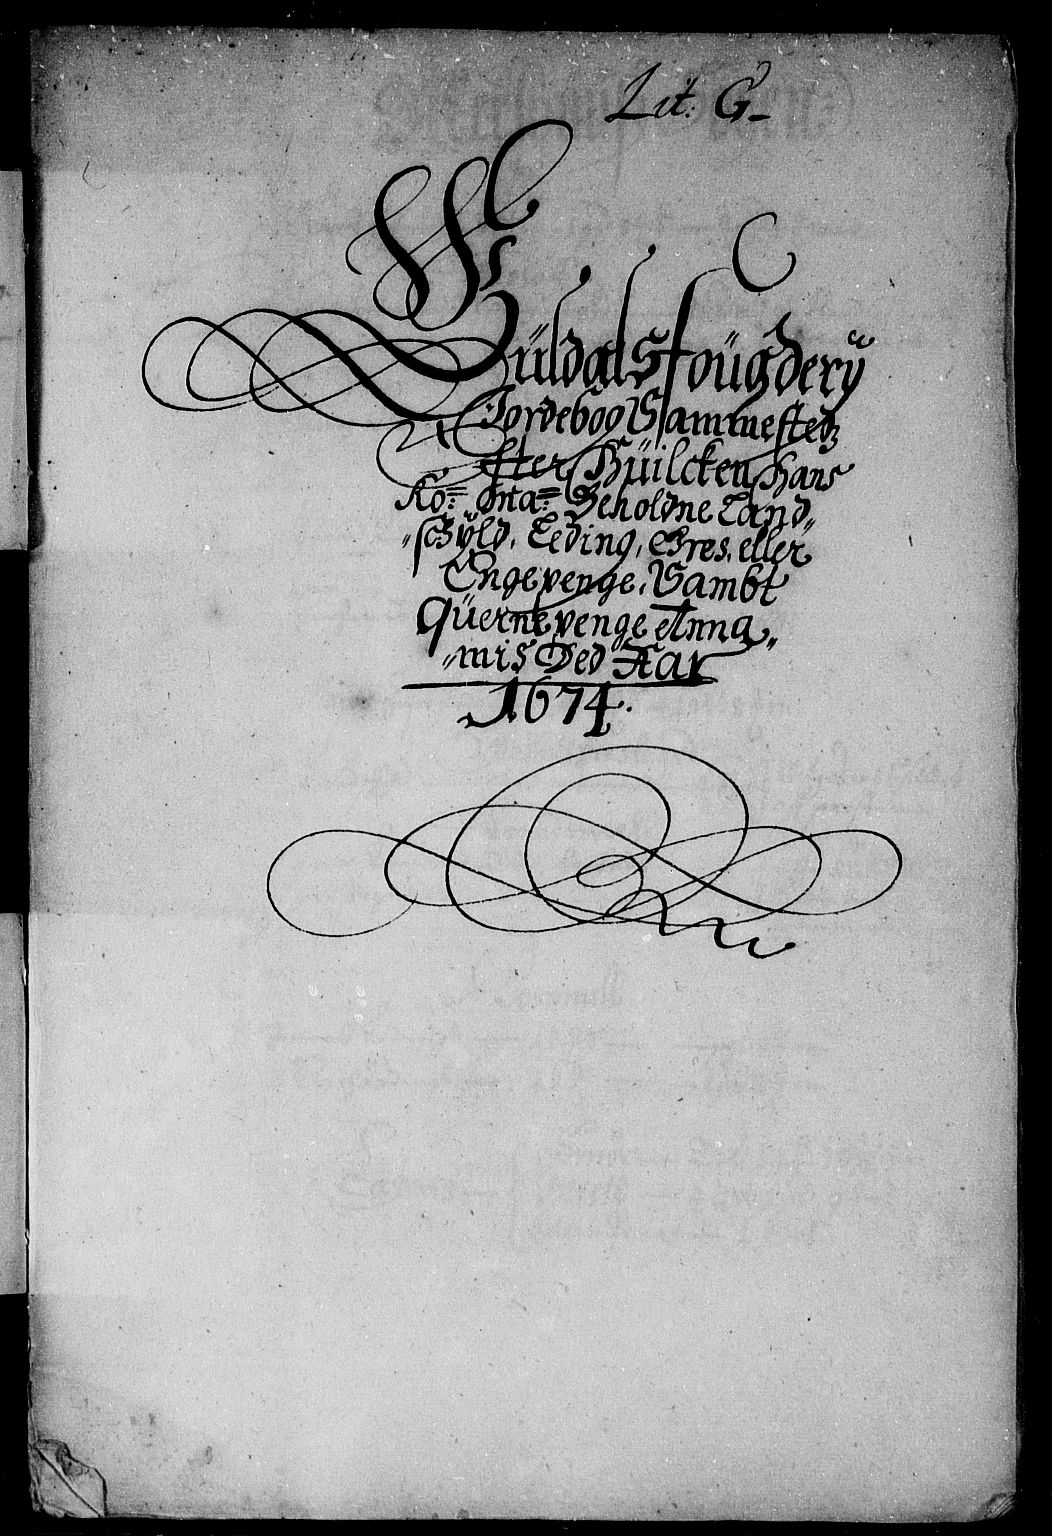 Lit: G_
Güldals fougderÿ
Jordebog Sammestedz
Efter Hüilcken Hans
Ko= Ma= Beholdne Land„
„schÿld, Leding, Ores, eller
Engepenge, Sambt
Quernepenge Anna„
„mis Ded Aar
1674.